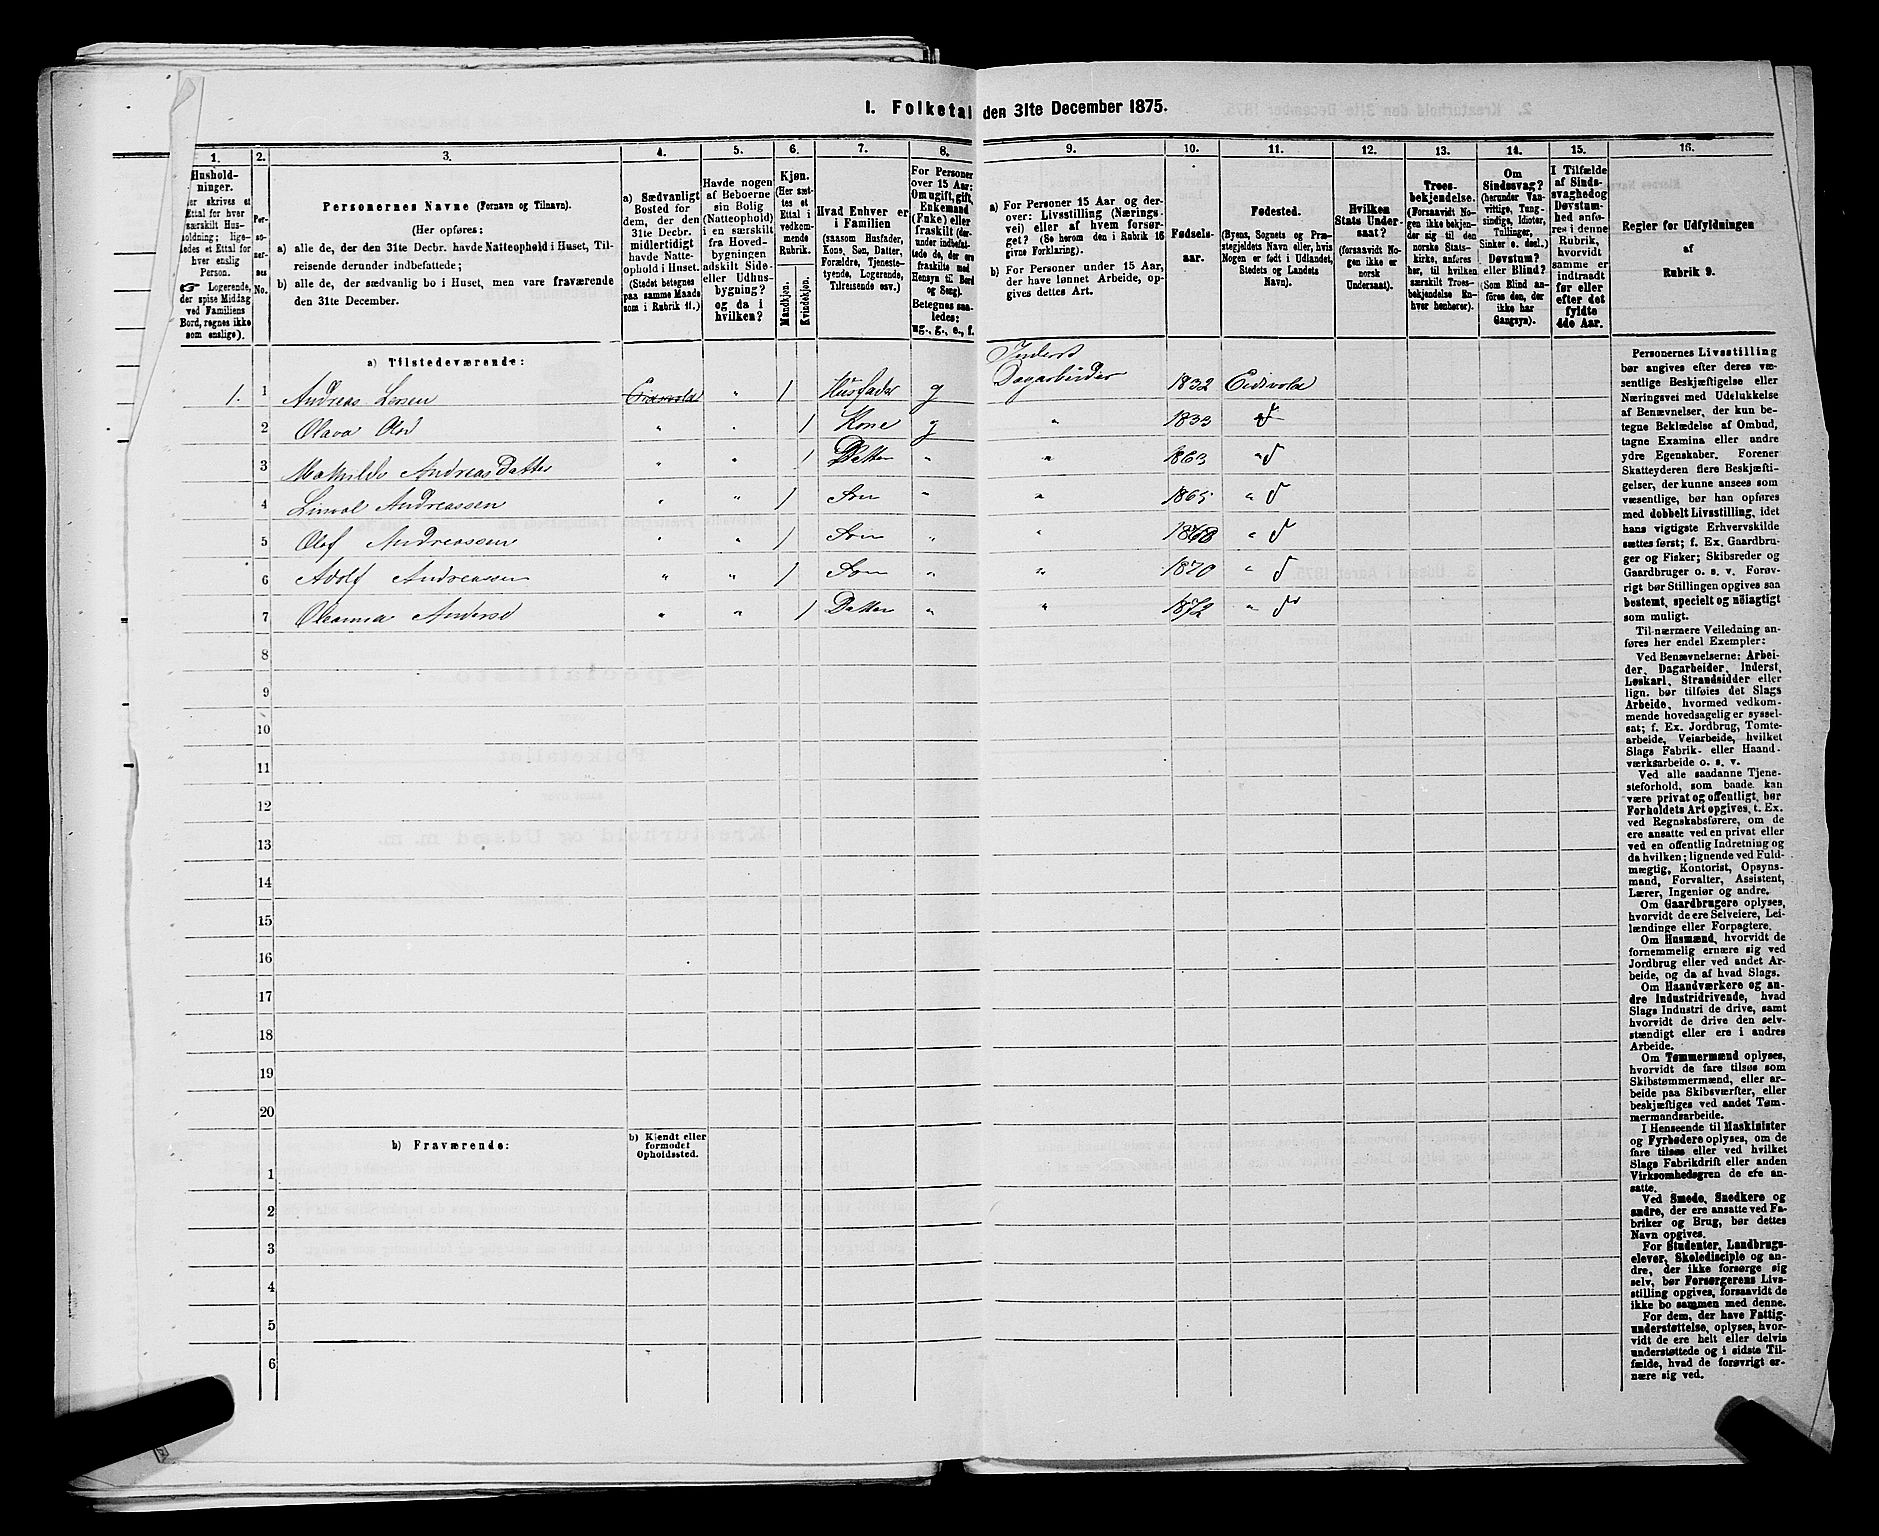 1. Folketal den 31te December 1875.
1. 2. 3. 4. 5. 6. 7. 8. 9. 10. 11. 12. 13. 14. 15. 16.
Hushold-
ninger.
er skrives et
Ettal for hver
særskilt Hus-
holdning; lige-
ledes et Ettal for
hver enslig
Person.
☛ Logerende,
der spise Middag
ved Familiens
Bord, regnes ikke
som enslige).
Per-
so-
ner-
nes
No.
Personernes Navne (Fornavn og Tilnavn).
(Her opføres:
a) alle de, der den 31te Decbr. havde Natteophold i Huset, Til-
reisende derunder indbefattede;
b) alle de, der sædvanlig bo i Huset, men vare fraværende
den 31te December.
a) Sædvanligt
Bosted for
dem, der den
31te Decbr.
midlertidigt
havde Natte-
ophold i Huset.
(Stedet betegnes
paa samme Maade
som i Rubrik 11.)
Havde nogen
af Beboerne
sin Bolig
(Natteophold)
i en særskilt
fra Hoved-
bygningen
adskilt Side-
eller Udhus-
bygning?
og da i
hvilken?
Kjøn.
(Her sæt-
tes et
Ettal i
vedkom-
mende
Rubrik.
Mandkjøn.
Kvindekjøn.
Hvad Enhver er
i Familien
(saasom Husfader,
Kone, Søn, Datter,
Forældre, Tjeneste-
tyende, Logerende,
Tilreisende osv.)
For Personer
over 15 Aar:
Om ugift, gift,
Enkemand
(Enke) eller
fraskilt (der-
under indbefat-
tede de, der ere
fraskilte med
Hensyn til Bord
og Seng).
Betegnes saa-
ledes:
ug., g., e., f.
a) For Personer 15 Aar og der-
over: Livsstilling (Nærings-
vei) eller af hvem forsør-
get? (Se herom den i Rubrik 16
givne Forklaring).
b) For Personer under 15 Aar,
der have lønnet Arbeide, op-
gives dettes Art.
Fødsels-
aar.
Fødested.
(Byens, Sognets og Præ-
stegjeldets Navn eller, hvis
Nogen er født i Udlandet,
Stedets og Landets
Navn).
Hvilken
Stats Under-
saat?
(forsaavidt No-
gen ikke er
norsk
Undersaat).
Troes-
bekjendelse.
(Forsaavidt No-
gen ikke bekjen-
der sig til den
norske Stats-
kirke, anføres
her, til hvilken
særskilt Troes-
bekjendelse En-
hver henhører).
Om
Sindssvag?
(herunder Van-
vittige, Tung-
sindige, Idioter,
Tullinger,
Sinker o. desl.)
Døvstum?
eller Blind?
(Som Blind an-
føres den, der
ikke har
Gangsyn).
I Tilfælde
af Sinds-
svaghed og
Døvstum-
hed anfø-
res i denne
Rubrik,
hvorvidt
samme er
indtraadt
før eller
efter det
fyldte
4de Aar.
Regler for Udfyldningen
af
Rubrik 9.
a) Tilstedeværende:
1. 1 Andreas Larsen Eidsvold " 1 Husfader g Inderst Dagarbeider 1832 Eidsvold
2 Olava Olsd " " 1 Kone g " 1833 " d
3 Mathilde Andreas Datter " " 1 Datter " " 1863 " d
4 Linval Andreassen " " 1 Søn " " 1865 " d
5 Olaf Andreassen " " 1 Søn " " 1868 " d
6 Adolf Andreassen " " 1 Søn " " 1870 " d
7 Oleanna Andersd " " 1 Datter " " 1872 " do
8
9
10
11
12
13
14
15
16
17
18
19
20
b) Fraværende:
b) Kjendt eller
formodet
Opholdssted.
1
2
3
4
5
6
Personernes Livsstilling
bør angives efter deres væ-
sentlige Beskjæftigelse eller
Næringsvei med Udelukkelse
af Benævnelser, der kun be-
tegne Beklædelse af Ombud,
tagne Examina eller andre
ydre Egenskaber. Forener
Skatteyderen flere Beskjæfti-
gelser, der kunne ansees som
væsentlige, bør han opføres
med dobbelt Livsstilling, idet
hans vigtigste Erhvervskilde
sættes først; f. Ex. Gaardbru-
ger og Fisker; Skibsreder og
Gaardbruger o. s. v. Forøv-
rigt bør Stillingen opgives saa
bestemt, specielt og nöiagtigt
som muligt.
Til nærmere Veiledning an-
føres her endel Exempler:
Ved Benævnelserne: Arbei-
der, Dagarbeider, Inderst,
Løskarl, Strandsidder eller
lign. bør tilføies det Slags
Arbeide, hvormed vedkom-
mende hovedsagelig er syssel-
sat; f. Ex. Jordbrug, Tomte-
arbeide, Veiarbeide, hvilket
Slags Fabrik- eller Haand-
værksarbeide o. s. v.
Ved alle saadanne Tjene-
steforhold, som baade kan
være privat og offentligt, bør
Forholdets Art opgives, t. Ex.
ved Regnskabsførere, om de
ere ansatte ved en privat eller
ved en offentlig Indretning og
da hvilken; lignende ved Fuld-
mægtig, Kontorist, Opsyns-
mand, Forvalter, Assistent,
Lærer, Ingeniør og andre.
Om Gaardbrugere oplyses,
hvorvidt de ere Selveiere, Lei-
lændinge eller Forpagtere.
Om Husmænd, hvorvidt de
fornemmelig ernære sig ved
Jordbrug eller ved andet Ar-
beide, og da af hvad Slags.
Om Haandværkere og an-
dre Industridrivende, hvad
Slags Industri de drive, samt
hvorvidt de drive den selv-
stændigt eller ere i andres
Arbeide.
Om Tømmermænd oplyses,
hvorvidt de fare tilsøs som
Skibstømmermænd, eller ar-
beide paa Skibsværfter, eller
beskjæftiges ved andet Tøm-
mermandsarbeide.
I Henseende til Maskinister
og Fyrbødere oplyses, om de
fare tilsøs eller ved hvilket
Slags Fabrikdrift eller anden
Virksomhedsgren de ere an-
satte.
Ved Smede, Snedkere og
andre, der ere ansatte ved Fa-
briker og Brug, bør dettes
Navn opgives.
For Studenter, Landbrugs-
elever, Skoledisciple og an-
dre, der ikke forsørge sig
selv, bør Forsørgerens Livs-
stilling opgives, forsaavidt de
ikke bo sammen med denne.
For dem, der have Fattig-
understøttelse, oplyses, hvor-
vidt de ere helt eller delvis
understøttede og i sidste Til-
fælde, hvad de forøvrigt er-
nære sig ved.